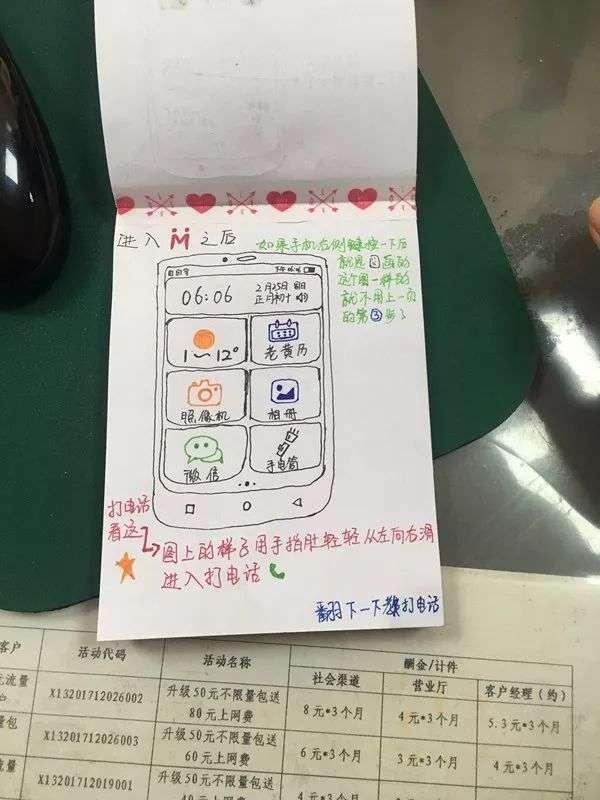 进入 M 之后
如果手机右侧键按一下后
就是画的
这个图一样的
就不用上一页
的第③步了
06:06
2月25日 周日
正月初十
1～12°
老黄历
照像机
相册
微信
手电筒
打电话
看这
图上的样子用手指肚轻轻从左向右滑
进入打电话
翻下一下教打电话
客户 活动代码 活动名称 酬金/计件
社会渠道 营业厅 客户经理（约）
元流量 X13201712026002 升级50元不限量包送
80元上网费 8元*3个月 4元*3个月 5.3元*3个月
量包 X13201712026003 升级50元不限量包送
60元上网费 6元*3个月 3元*3个月 4元*3个月
流量 X13201712019001 升级50元不限量包送
40元上网费 4元*3个月 2元*3个月